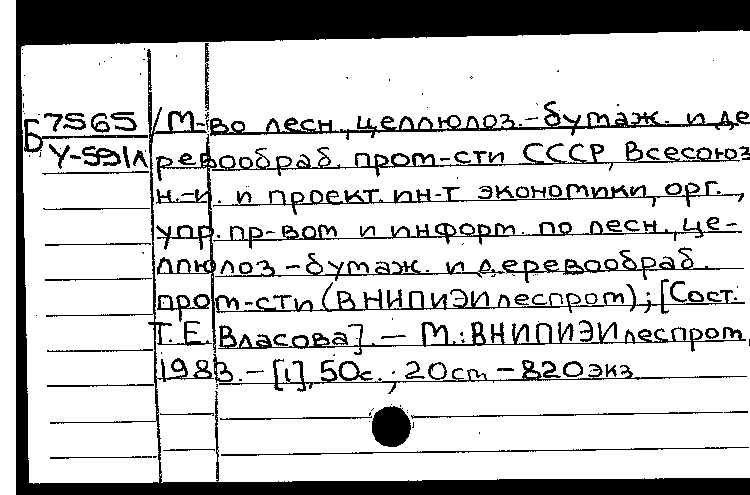 Б 7565 / М-во лесн., целлюлоз.-бумаж. и де
У-591л ревообраб. пром-сти СССР, Всесоюз.
н.-и. и проект. ин-т экономики, орг.,
упр. пр-вом и информ. по лесн., це-
ллюлоз.-бумаж. и деревообраб.
пром-сти (ВНИПИЭИлеспром); [Сост.
Т. Е. Власова]. — М.: ВНИПИЭИлеспром,
1983. - [1], 50с. ; 20cm - 820экз